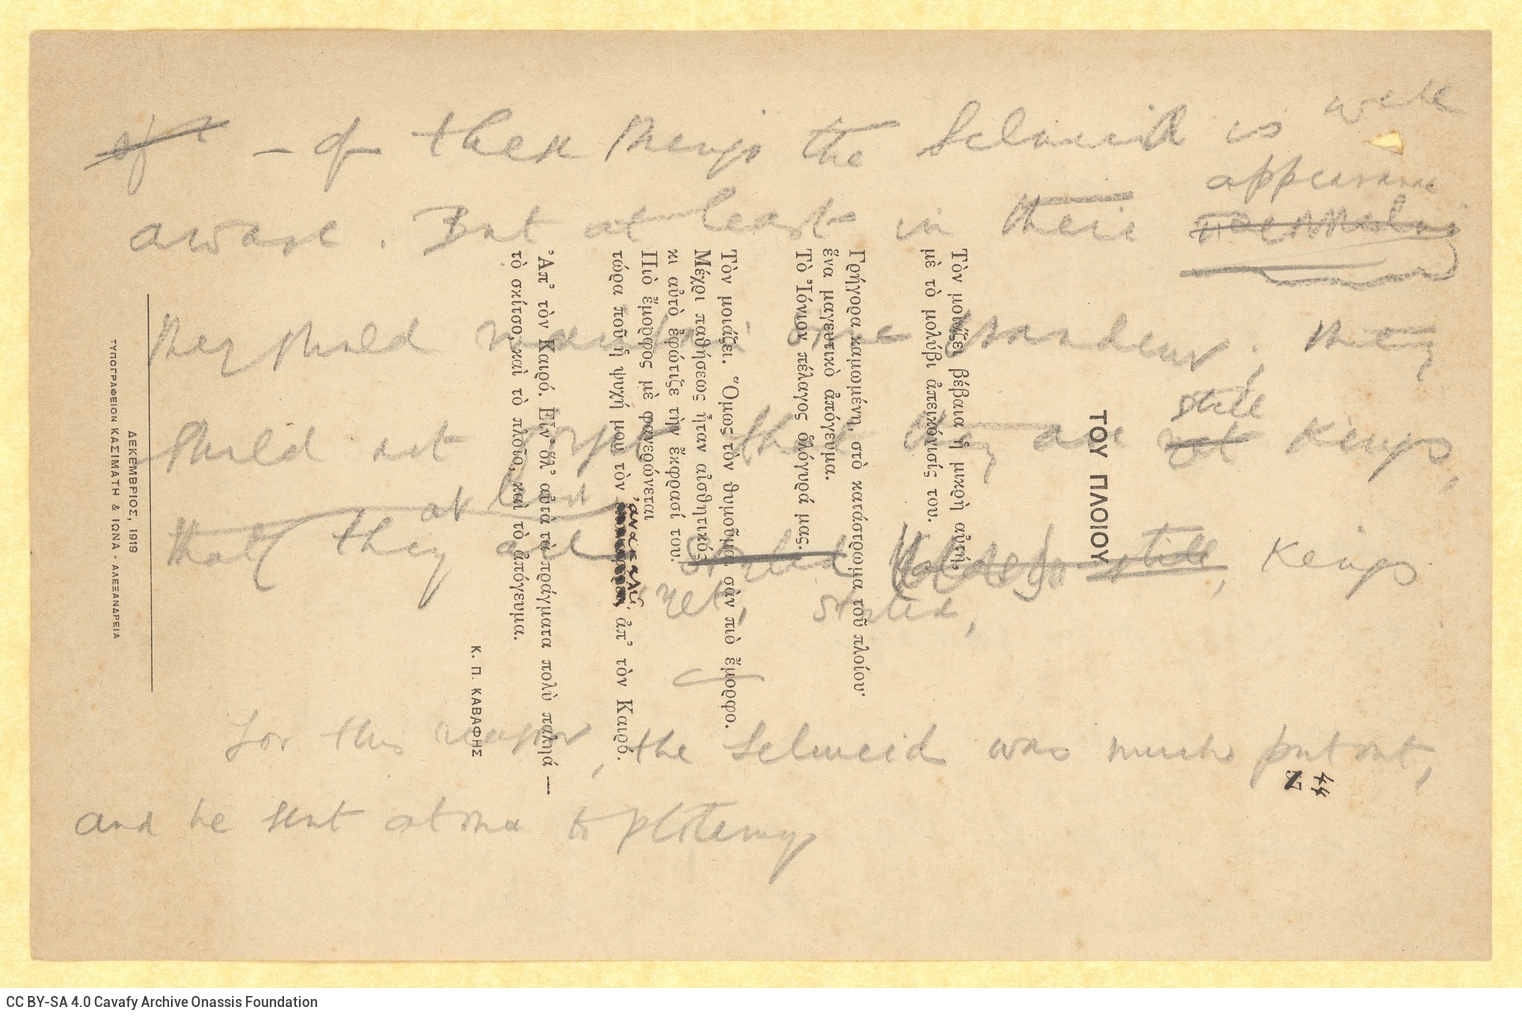 of — of these things the Seleucid is well
appearance
aware. But at least in their
they should maintain some grandeur; they
still
should not forget that they are yet Kings,
at least
that they are styled still, Kings
yet, styled,
For this reason, the Seleucid was much put out,
and he sent at once to Ptolemy
ΤΟΥ ΠΛΟΙΟΥ
Τὸν μοιάζει βέβαια ἡ μικρὴ αὐτή,
μὲ τὸ μολύβι ἀπεικόνισίς του.
Γρήγορα καμωμένη, στὸ κατάστρωμα τοῦ πλοίου·
ἕνα μαγευτικὸ ἀπόγευμα.
Τὸ Ἰόνιον πέλαγος ὁλόγυρά μας.
Τὸν μοιάζει. Ὅμως τὸν θυμοῦμαι σὰν πιὸ ἔμορφο.
Μέχρι παθήσεως ἦταν αἰσθητικός,
κι αὐτὸ ἐφώτιζε τὴν ἔκφρασί του.
Πιὸ ἔμορφος μὲ φανερώνεται
τώρα ποῦ ἡ ψυχή μου τὸν ἀνακαλεῖ, ἀπ᾽ τὸν Καιρό.
Ἀπ᾽ τὸν Καιρό. Εἶν᾽ ὅλ᾽ αὐτὰ τὰ πράγματα πολὺ παληά —
τὸ σκίτσο, καὶ τὸ πλοῖο, καὶ τὸ ἀπόγευμα.
Κ. Π. ΚΑΒΑΦΗΣ
ΔΕΚΕΜΒΡΙΟΣ, 1919
ΤΥΠΟΓΡΑΦΕΙΟΝ ΚΑΣΙΜΑΤΗ & ΙΩΝΑ - ΑΛΕΞΑΝΔΡΕΙΑ
44
CC BY-SA 4.0 Cavafy Archive Onassis Foundation